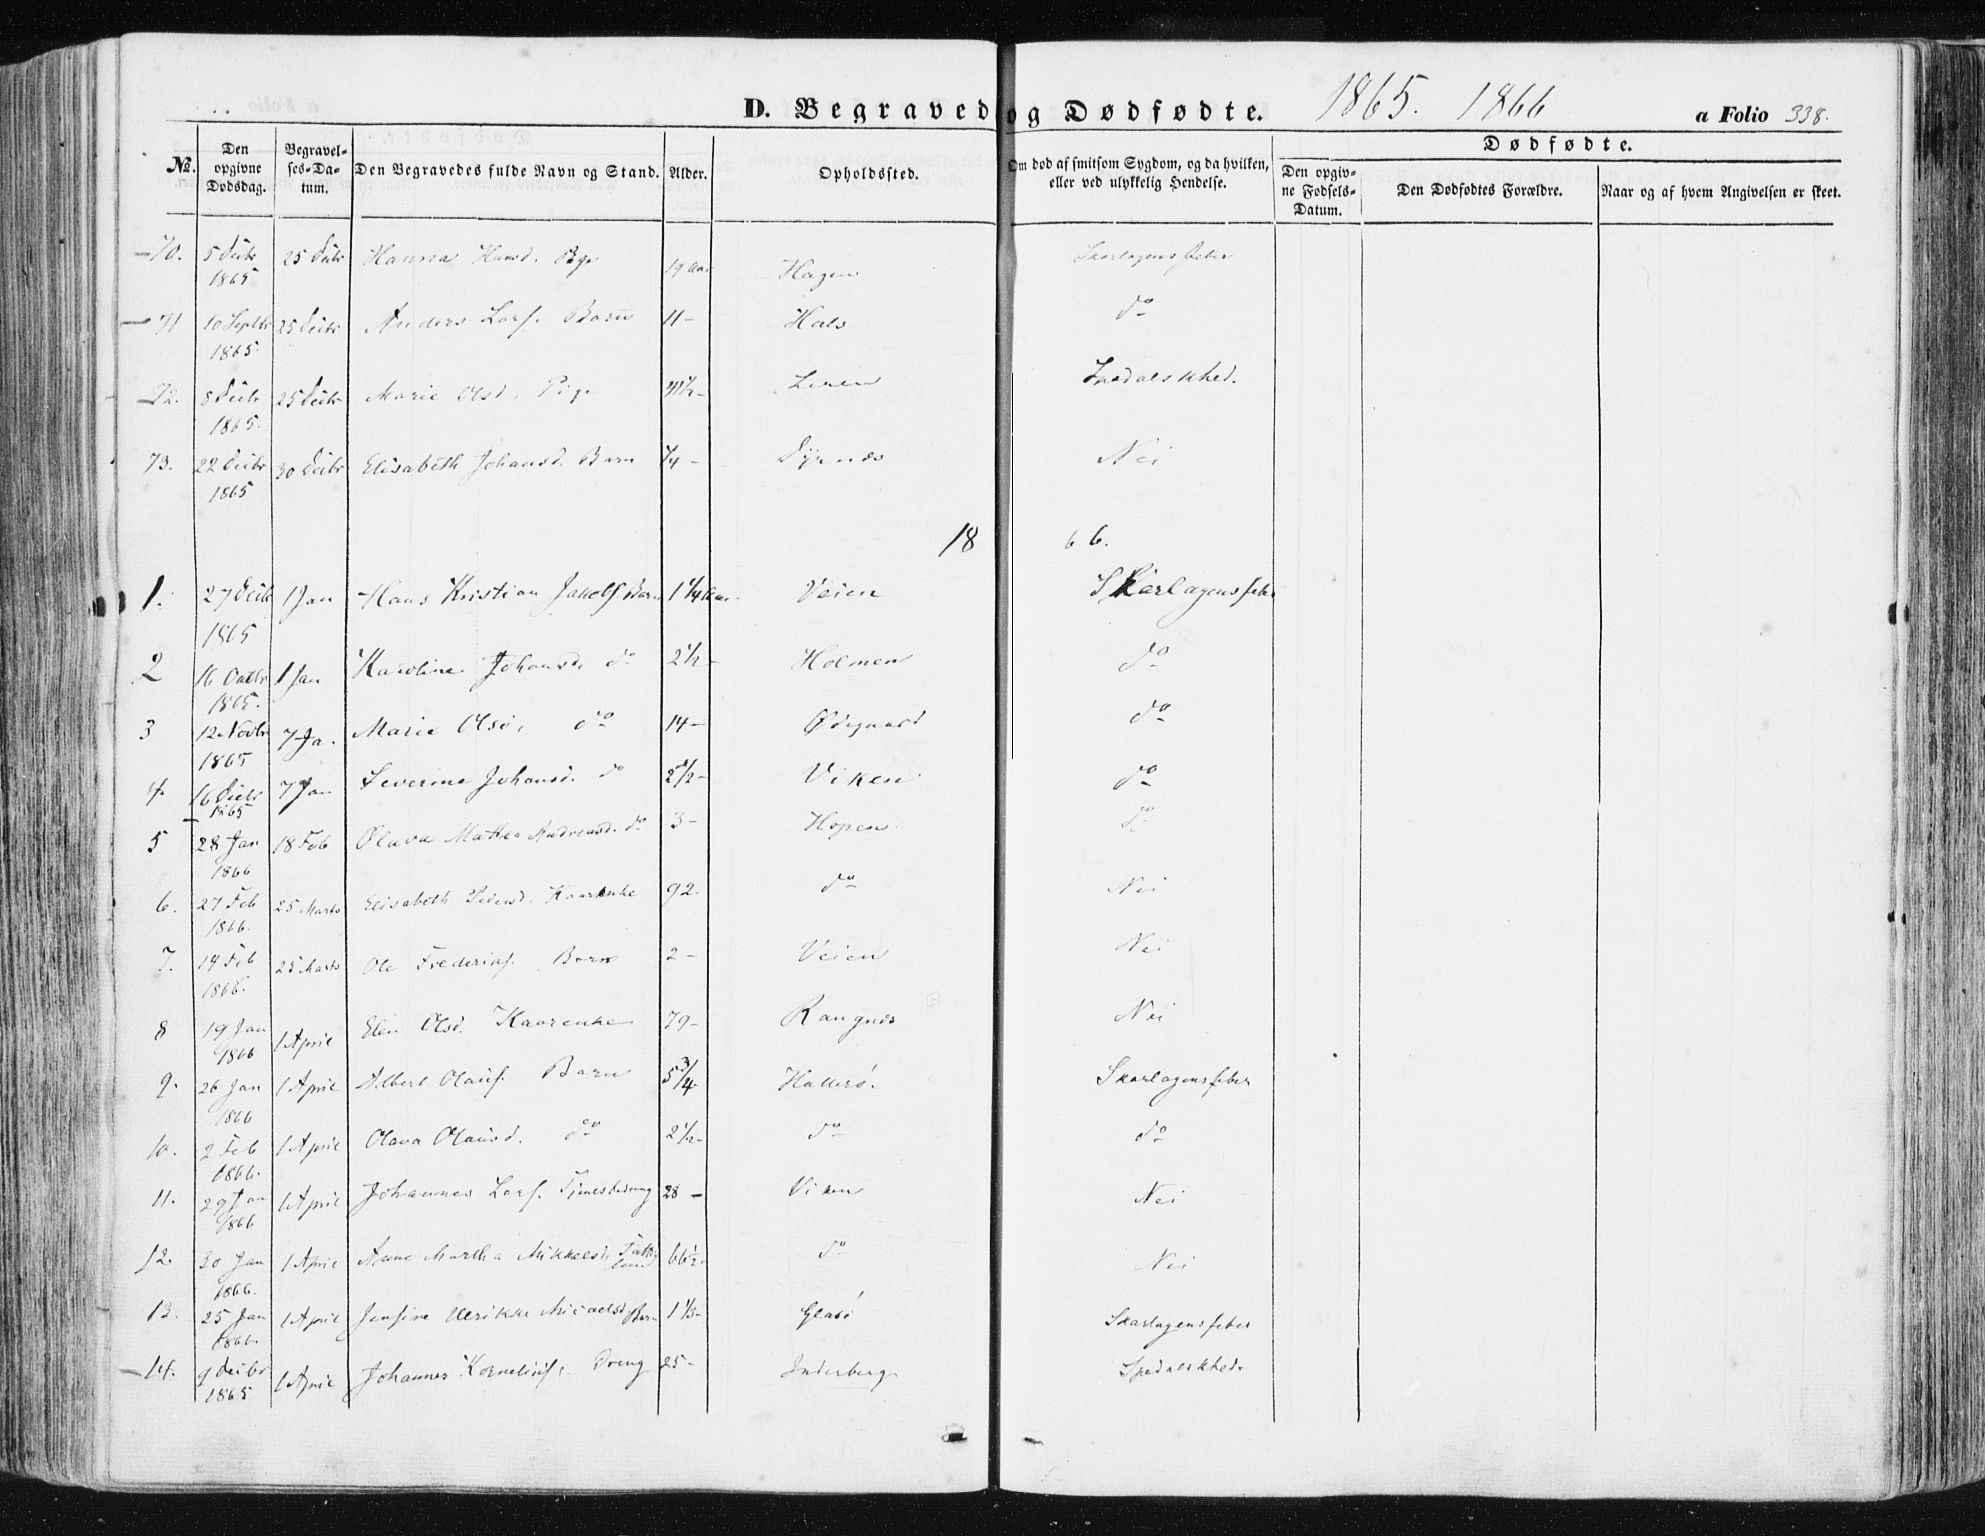 D. Begravede og Dødfødte. 1865. 1866 a Folio 338.
No. Den opgivne Dødsdag. Begravelses-Datum. Den Begravedes fulde Navn og Stand. Alder. Opholdssted. Om død af smitsom Sygdom, og da hvilken, eller ved ulykkelig Hendelse. Dødfødte.
Den opgivne Fødsels-Datum. Den Dødfødtes Forældre. Naar og af hvem Angivelsen er skeet.
70. 5 Decbr 1865 25 Decbr Hanna Hansd. Pige 19 Aar Hagen Skarlagensfeber
71 10 Septbr 1865. 25 Decbr Anders Larss. Barn 11 - Hals do
72. 8 Decbr 1865. 25 Decbr Marie Olsd. Pige 41½ - Leren Spedalskhed.
73. 22 Decbr 1865 30 Decbr Elisabeth Johansd. Barn ¼ - Dyrnæs Nei
18 66.
1. 27 Decbr 1865 1 Jan Hans Kristian Jakobs. Barn 1¼ Aar Veien Skarlagensfeber
2 16 Octbr 1865. 1 Jan Karoline Johansd. do 2½ - Holmen do
3 12 Novbr 1865 7 Ja. Marie Olsd. do 14 - Ødegaard do
4. 16 Decbr 1865 7 Jan Severine Johansd. do 2½ - Viken do
5 28 Jan 1866 18 Feb Olava Mathea Andreasd. do 3 - Hopen do
6. 27 Feb 1866. 25 Marts Elisabeth Pedersd. Kaarenke 92 - do Nei
7. 14 Feb 1866. 25 Marts Ole Frederiks. Barn 2 - Veien Nei
8 19 Jan 1866 1 April Elen Olsd. Kaarenke 79 - Rangnæs Nei
9. 26 Jan 1866 1 April Albert Olaus. Barn 5¾ - Hallerö. Skarlagensfeber
10. 2 Feb 1866. 1 April Olava Olausd. do 2½ - do do
11. 29 Jan 1866 1 April Johannes Lars. Tjenestedreng 28 - Viken Nei
12. 30 Jan 1866. 1 April Anne Martha Mikkelsd. 66½ - do Nei
13. 25 Jan 1866. 1 April Jensine Ulrikke Micaelsd. Barn 1⅓ - Glasö Skarlagensfeber
14. 9 Decbr 1865 1 April Johannes Kornelius. Dreng 25 - Inderberg Spedalskhed.